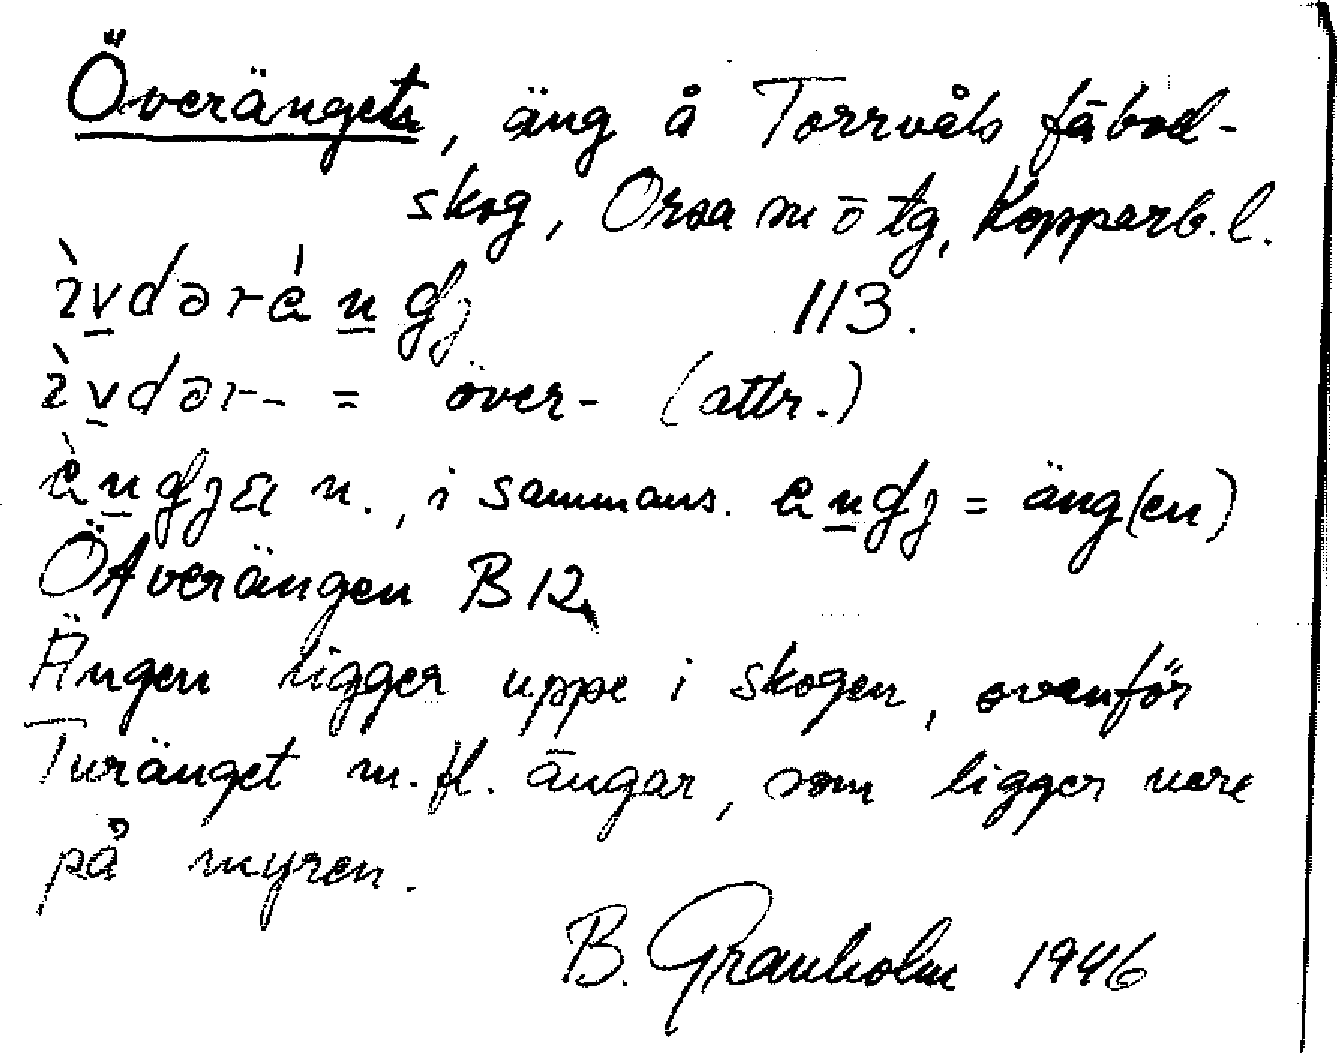 Överänget, äng å Torrvåls fäbod-
skog, Orsa sn o tg, Kopparb. l.
113.
= över- (attr.)
n., i sammans. = äng(en)
Öfverängen B 12
Ängen ligger uppe i skogen, ovanför
Turänget m.fl. ängar, som ligger nere
på myren.
B. Granholm 1946